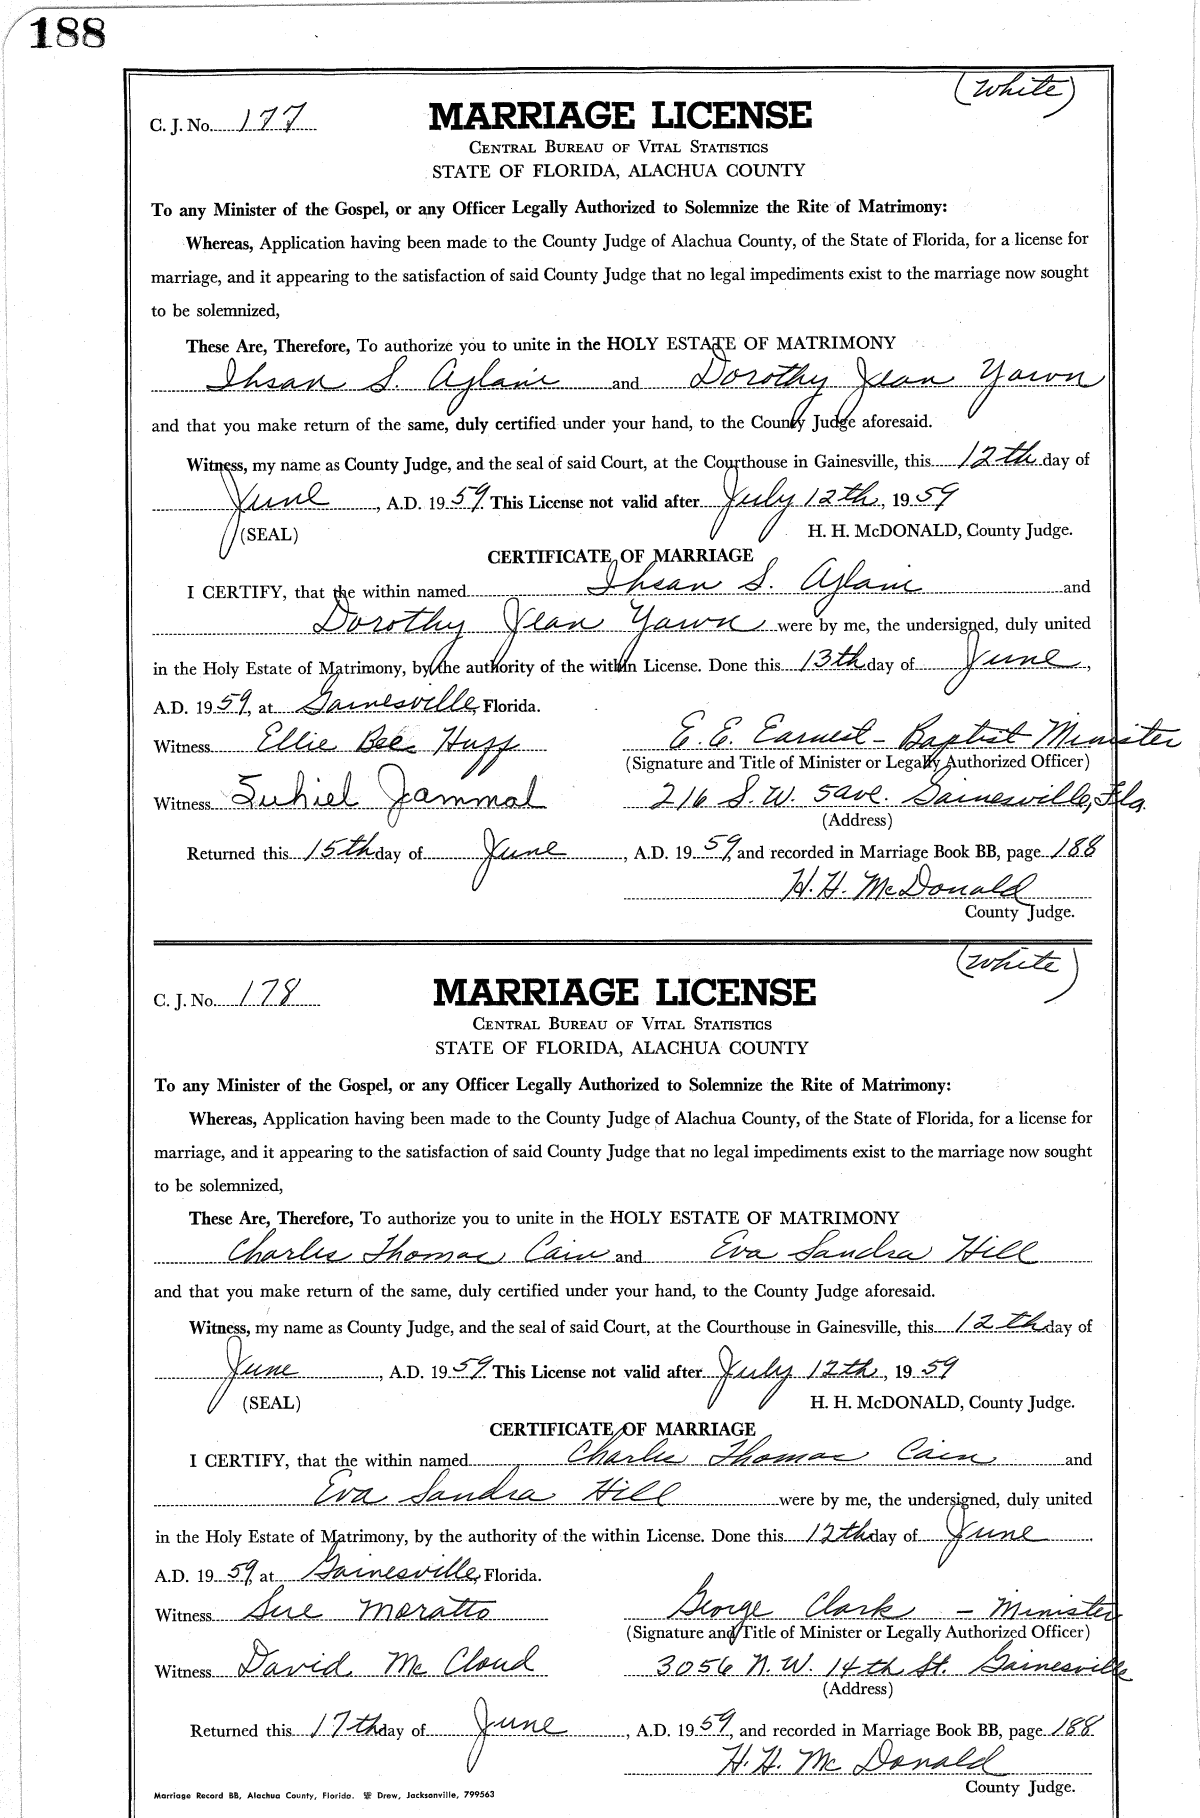 188
(White)
C. J. No. 177
MARRIAGE LICENSE
CENTRAL BUREAU OF VITAL STATISTICS
STATE OF FLORIDA, ALACHUA COUNTY
To any Minister of the Gospel, or any Officer Legally Authorized to Solemnize the Rite of Matrimony:
Whereas, Application having been made to the County Judge of Alachua County, of the State of Florida, for a license for
marriage, and it appearing to the satisfaction of said County Judge that no legal impediments exist to the marriage now sought
to be solemnized,
These Are, Therefore, To authorize you to unite in the HOLY ESTATE OF MATRIMONY
Ihsan S. Ajlani and Dorothy Jean Yawn
and that you make return of the same, duly certified under your hand, to the County Judge aforesaid.
Witness, my name as County Judge, and the seal of said Court, at the Courthouse in Gainesville, this 12th day of
June, A.D. 1959. This License not valid after July 12th, 1959
(SEAL) H. H. McDONALD, County Judge.
CERTIFICATE OF MARRIAGE
I CERTIFY, that the within named Ihsan S. Ajlani and
Dorothy Jean Yawn were by me, the undersigned, duly united
in the Holy Estate of Matrimony, by the authority of the within License. Done this 13th day of June,
A.D. 1959, at Gainesville, Florida.
Witness Ellie Bee Huff E. E. Earnest - Baptist Minister
(Signature and Title of Minister or Legally Authorized Officer)
Witness Suhiel Jammal 216 S. W. 5 ave. Gainesville, Fla.
(Address)
Returned this 15th day of June, A.D. 1959, and recorded in Marriage Book BB, page 188
H. H. McDonald
County Judge.
(White)
C. J. No. 178
MARRIAGE LICENSE
CENTRAL BUREAU OF VITAL STATISTICS
STATE OF FLORIDA, ALACHUA COUNTY
To any Minister of the Gospel, or any Officer Legally Authorized to Solemnize the Rite of Matrimony:
Whereas, Application having been made to the County Judge of Alachua County, of the State of Florida, for a license for
marriage, and it appearing to the satisfaction of said County Judge that no legal impediments exist to the marriage now sought
to be solemnized,
These Are, Therefore, To authorize you to unite in the HOLY ESTATE OF MATRIMONY
Charles Thomas Cain and Eva Sandra Hill
and that you make return of the same, duly certified under your hand, to the County Judge aforesaid.
Witness, my name as County Judge, and the seal of said Court, at the Courthouse in Gainesville, this 12th day of
June, A.D. 1959. This License not valid after July 12th, 1959
(SEAL) H. H. McDONALD, County Judge.
CERTIFICATE OF MARRIAGE
I CERTIFY, that the within named Charles Thomas Cain and
Eva Sandra Hill were by me, the undersigned, duly united
in the Holy Estate of Matrimony, by the authority of the within License. Done this 12th day of June
A.D. 1959, at Gainesville, Florida.
Witness Sue Moratto George Clark - Minister
(Signature and Title of Minister or Legally Authorized Officer)
Witness David McCloud 3056 N. W. 14th St. Gainesville
(Address)
Returned this 17th day of June, A.D. 1959, and recorded in Marriage Book BB, page 188
H. H. McDonald
County Judge.
Marriage Record BB, Alachua County, Florida. Drew, Jacksonville, 799563